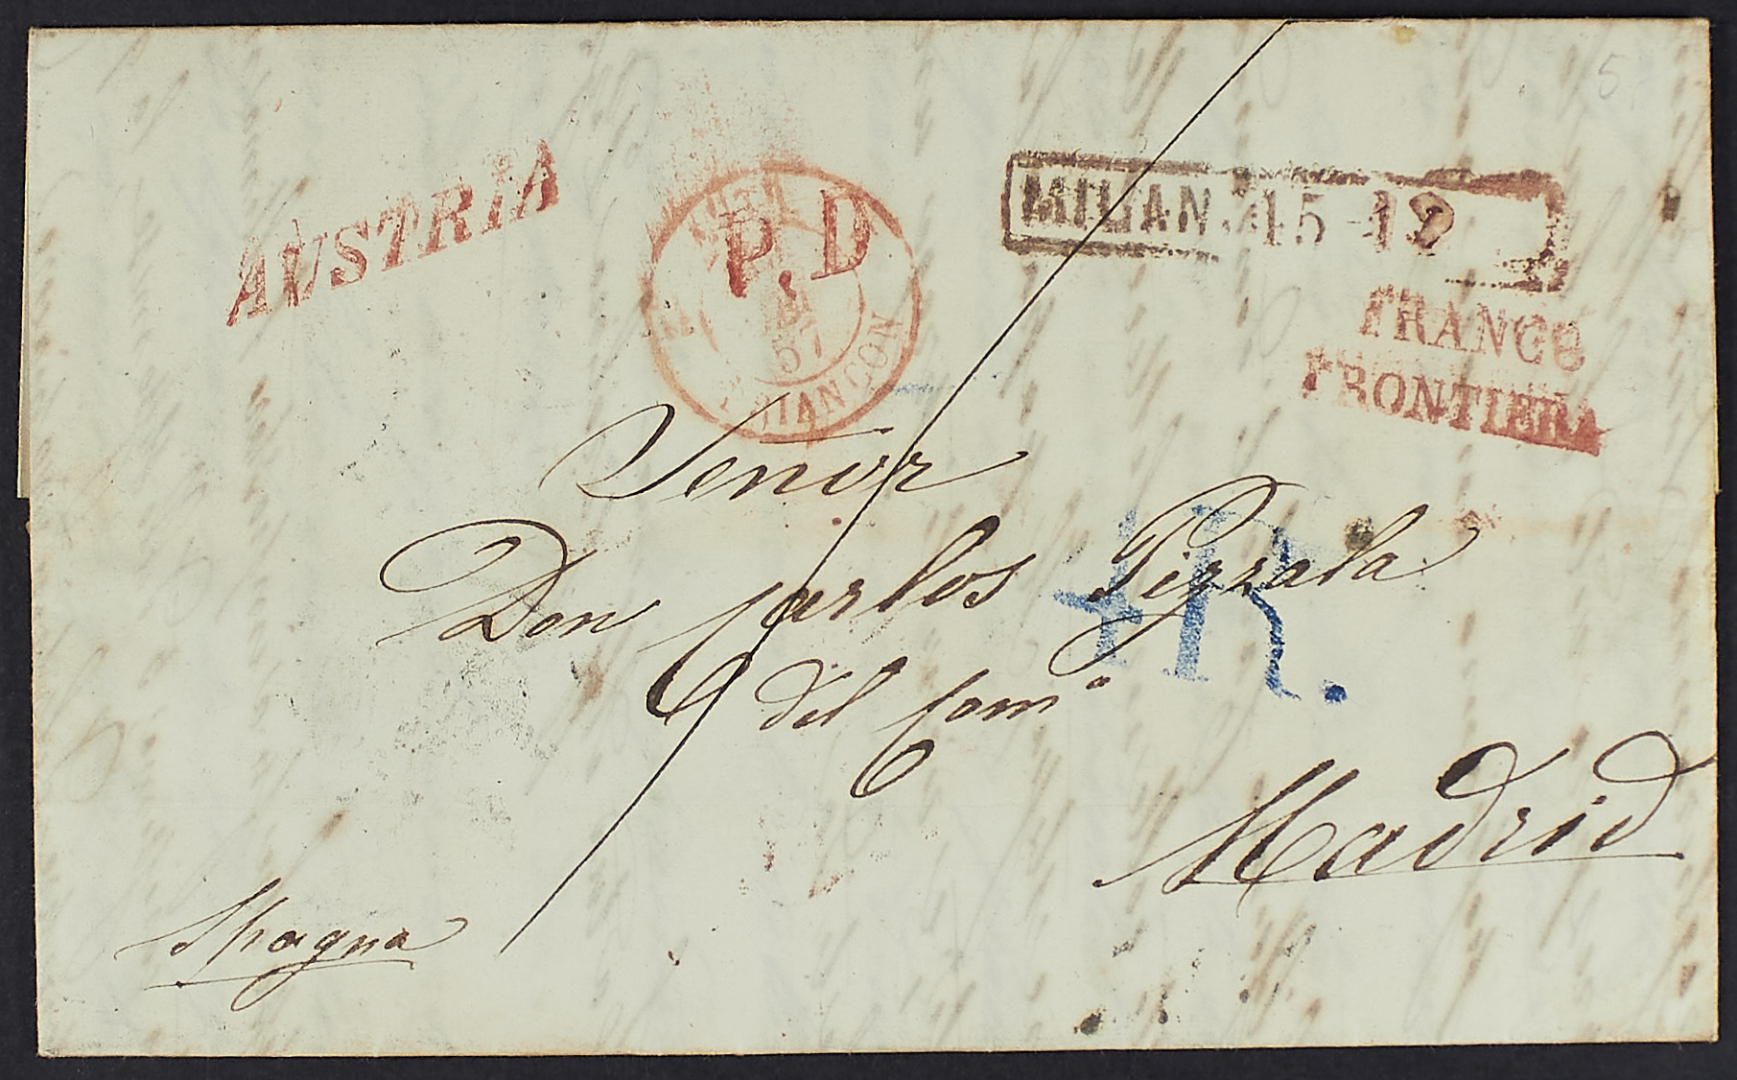 5
AUSTRIA
P.D
57
BRIANÇON
MAILAN. 15
FRANCO
FRONTIERA
Señor
Don Carlos Pizzala
del Comº
4R.
Madrid
Spagna